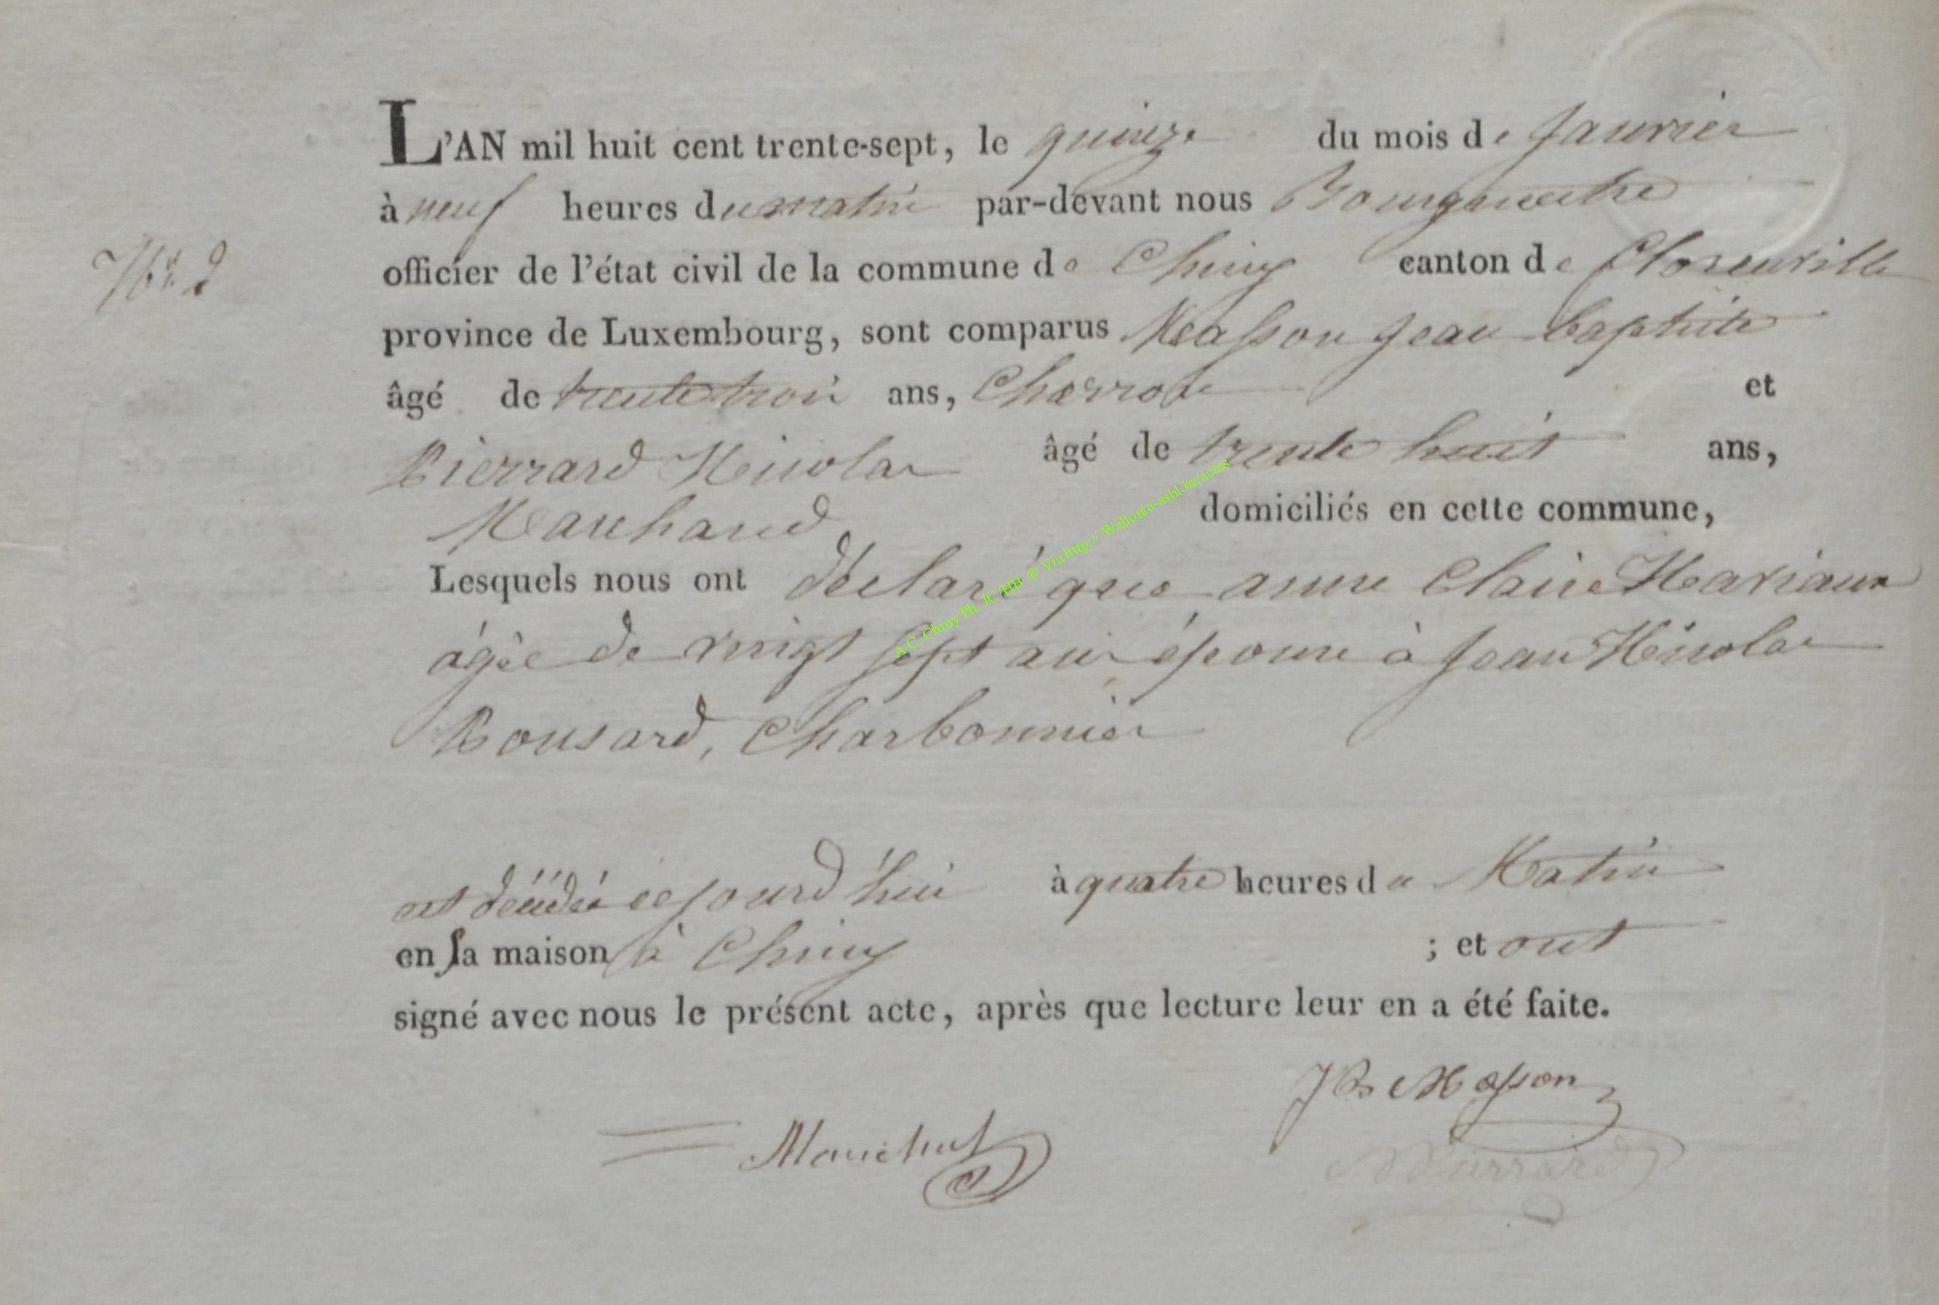 L'AN mil huit cent trente-sept, le quinze du mois de Janvier
à neuf heures du matin par-devant nous Bourgmestre
N° 2
officier de l'état civil de la commune de Chiny canton de Florenville
province de Luxembourg, sont comparus Masson Jean baptiste
âgé de trente trois ans, Charron et
Pierrard Nicolas âgé de trente huit ans,
Marchand domiciliés en cette commune,
Lesquels nous ont déclaré que anne Claire Mariaux
âgée de vingt sept ans épouse à Jean Nicolas
Ronsard, Charbonnier
est décédée cejourd'hui à quatre heures du Matin
en sa maison à Chiny ; et ont
signé avec nous le présent acte, après que lecture leur en a été faite.
JB Masson